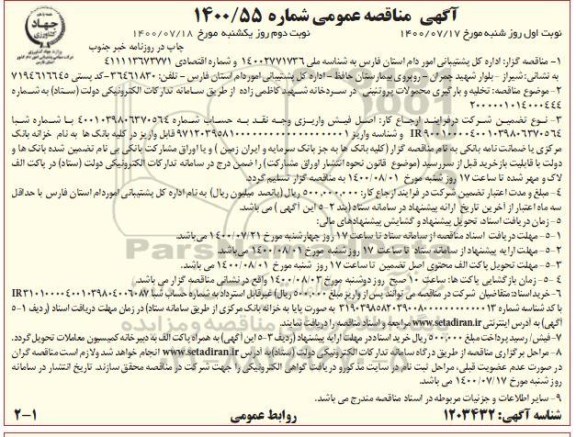 آگهی مناقصه عمومی شماره ۱۴۰۰/۵۵
نوبت اول روز شنبه مورخ ۱۴۰۰/۰۷/۱۷ نوبت دوم روز یکشنبه مورخ ۱۴۰۰/۰۷/۱۸
چاپ در روزنامه خبر جنوب
جهاد
کشاورزی
۱- مناقصه گزار: اداره کل پشتیبانی امور دام استان فارس به شناسه ملی ۱۴۰۰۲۷۷۱۷۳۶ و شماره اقتصادی ۴۱۱۱۱۳۶۷۳۷۷۱
به نشانی: شیراز - بلوار شهید چمران - روبروی بیمارستان حافظ - اداره کل پشتیبانی امور دام استان فارس - تلفن: ۳۶۴۶۱۸۳۰-کد پستی ۷۱۹۴۶۱۶۶۴۵
۲- موضوع مناقصه: تخلیه و بارگیری محصولات پروتئینی در سردخانه شهید کاظمی زاده از طریق سامانه تدارکات الکترونیکی دولت (ستاد) به شماره
۲۰۰۰۰۰۱۰۱۴۰۰۰۴۴۴
۳- نوع تضمین شرکت در فرایند ارجاع کار: اصل فیش واریزی وجه نقد به حساب شماره ۴۰۰۱۰۳۹۸۰۶۳۷۰۵۶۴ با شماره شبا
مرکزی یا ضمانت نامه بانکی به نام مناقصه گزار (کلیه بانک ها به جز بانک سرمایه و ایران زمین) و یا اوراق مشارکت بانکی بی نام تضمین شده بانک ها و
دولت با قابلیت بازخرید قبل از سررسید (موضوع قانون نحوه انتشار اوراق مشارکت) را ضمن درج در سامانه تدارکات الکترونیکی دولت (ستاد) در پاکت الف
لاک و مهر شده تا ساعت ۱۷ روز شنبه مورخ ۱۴۰۰/۰۸/۰۱ به مناقصه گزار تسلیم گردد.
۴- مبلغ و مدت اعتبار تضمین شرکت در فرایند ارجاع کار: ۵۰۰.۰۰۰.۰۰۰ ریال (پانصد میلیون ریال) به نام اداره کل پشتیبانی امور دام استان فارس با حداقل
سه ماه اعتبار از آخرین تاریخ ارائه پیشنهاد در سامانه ستاد (بند ۲-۵ این آگهی) می باشد.
۵- زمان دریافت اسناد، تحویل پیشنهاد و گشایش پیشنهادهای مالی:
۱-۵- مهلت دریافت اسناد مناقصه از سامانه ستاد تا ساعت ۱۷ روز چهارشنبه مورخ ۱۴۰۰/۰۷/۲۱ می باشد.
۲-۵- مهلت ارایه پیشنهاد از سامانه ستاد تا ساعت ۱۷ روز شنبه مورخ ۱۴۰۰/۰۸/۰۱ می باشد.
۳-۵- مهلت تحویل پاکت الف محتوی اصل تضمین تا ساعت ۱۷ روز شنبه مورخ ۱۴۰۰/۰۸/۰۱ می باشد.
۴-۵- زمان بازگشایی پاکت ها: ساعت ۱۰ صبح روز دوشنبه مورخ ۱۴۰۰/۰۸/۰۳ واقع در نشانی مناقصه گزار می باشد.
۶- خرید اسناد: متقاضیان شرکت در مناقصه می توانند پس از واریز مبلغ ۵۰۰.۰۰۰ ریال (غیر قابل استرداد به شماره حساب شبا
به صورت پایا به خزانه بانک مرکزی از طریق سامانه ستاد) در زمان مهلت دریافت اسناد (ردیف ۱-۵
آگهی) به آدرس اینترنتی www.setadiran.ir مراجعه و اسناد مناقصه را دریافت نمایند.
۷- فیش/رسید پرداخت مبلغ ۵۰۰.۰۰۰ ریال خرید اسناد در مهلت ارایه پیشنهاد (ردیف ۳-۵ این آگهی) به همراه پاکت الف به دبیرخانه کمیسیون معاملات تحویل گردد.
۸- مراحل برگزاری مناقصه از طریق درگاه سامانه تدارکات الکترونیکی دولت (ستاد) به آدرس www.setadiran.ir انجام خواهد شد و لازم است مناقصه گران
در صورت عدم عضویت قبلی، مراحل ثبت نام در سایت مذکور و دریافت گواهی الکترونیکی را جهت شرکت در مناقصه محقق سازند. تاریخ انتشار در سامانه
روز شنبه مورخ ۱۴۰۰/۰۷/۱۷ می باشد.
۹- سایر اطلاعات و جزئیات مربوطه در اسناد مناقصه مندرج می باشد.
شناسه آگهی: ۱۲۰۳۴۳۲ روابط عمومی ۲-۱